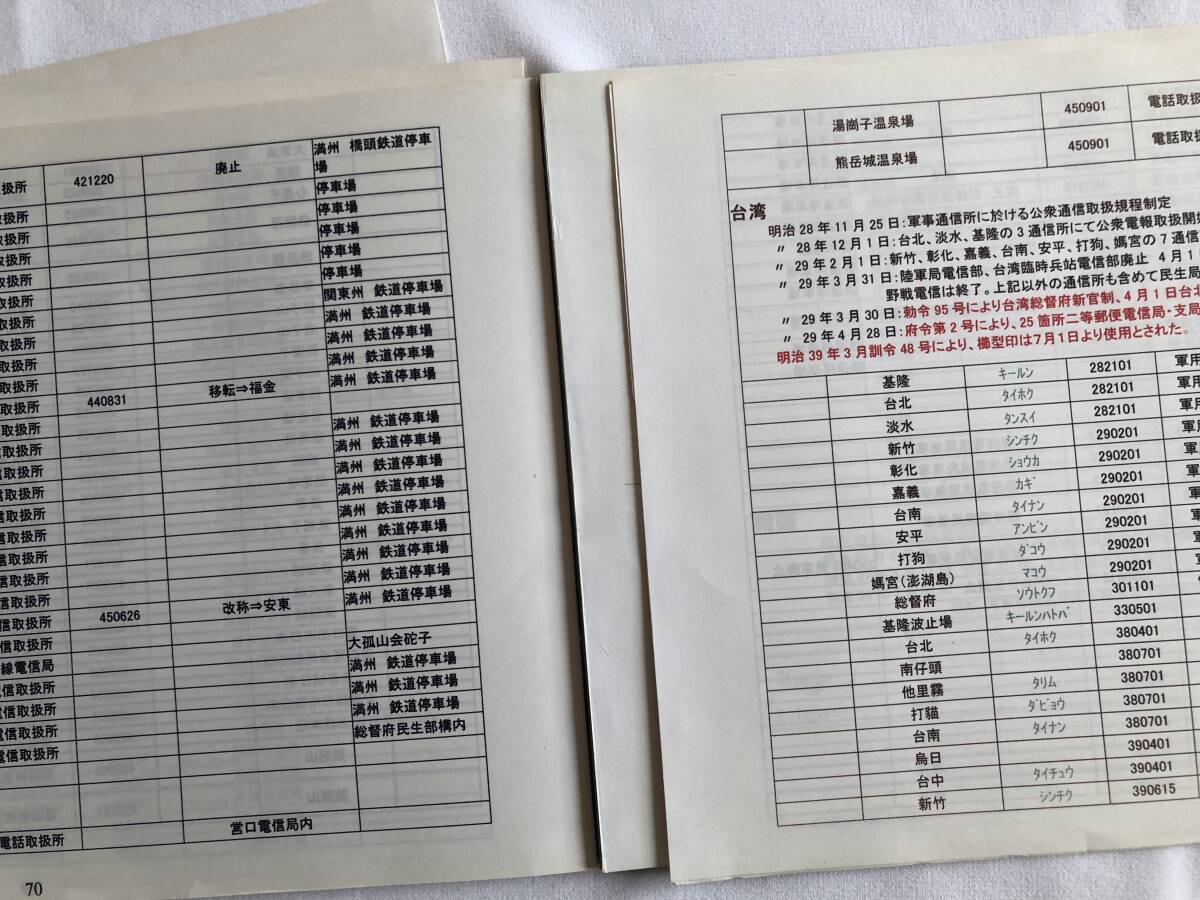 扱所 421220 廃止 満州 橋頭鉄道停車場
扱所 停車場
扱所 停車場
扱所 停車場
扱所 停車場
扱所 停車場
扱所 関東州 鉄道停車場
取扱所 満州 鉄道停車場
取扱所 満州 鉄道停車場
取扱所 満州 鉄道停車場
取扱所 440831 移転⇒福金 満州 鉄道停車場
取扱所
取扱所 満州 鉄道停車場
信取扱所 満州 鉄道停車場
信取扱所 満州 鉄道停車場
信取扱所 満州 鉄道停車場
信取扱所 満州 鉄道停車場
信取扱所 満州 鉄道停車場
信取扱所 満州 鉄道停車場
信取扱所 満州 鉄道停車場
信取扱所 450626 改称⇒安東 満州 鉄道停車場
信取扱所
線電信局 大孤山会砣子
電信取扱所 満州 鉄道停車場
電信取扱所 満州 鉄道停車場
電信取扱所 満州 鉄道停車場
電信取扱所 総督府民生部構内
電話取扱所 営口電信局内
70
湯崗子温泉場 450901 電話取扱
熊岳城温泉場 450901 電話取扱
台湾
明治28年11月25日:軍事通信所に於ける公衆通信取扱規程制定
〃 28年12月1日:台北、淡水、基隆の3通信所にて公衆電報取扱開始
〃 29年2月1日:新竹、彰化、嘉義、台南、安平、打狗、媽宮の7通信
〃 29年3月31日:陸軍局電信部、台湾臨時兵站電信部廃止 4月1日
野戦電信は終了。上記以外の通信所も含めて民生局
〃 29年3月30日:勅令95号により台湾総督府新官制、4月1日台北
〃 29年4月28日:府令第2号により、25箇所二等郵便電信局・支局
明治39年3月訓令48号により、櫛型印は7月1日より使用とされた。
基隆 キールン 282101 軍用
台北 タイホク 282101 軍用
淡水 タンスイ 282101 軍用
新竹 シンチク 290201 軍用
彰化 ショウカ 290201 軍用
嘉義 カギ 290201 軍
台南 タイナン 290201 軍
安平 アンピン 290201 軍
打狗 ダコウ 290201 軍
媽宮(澎湖島) マコウ 290201 軍
総督府 ソウトクフ 301101
基隆波止場 キールンハトバ 330501
台北 タイホク 380401
南仔頭 380701
他里霧 タリム 380701
打貓 ダビョウ 380701
台南 タイナン 380701
烏日 390401
台中 タイチュウ 390401
新竹 シンチク 390615